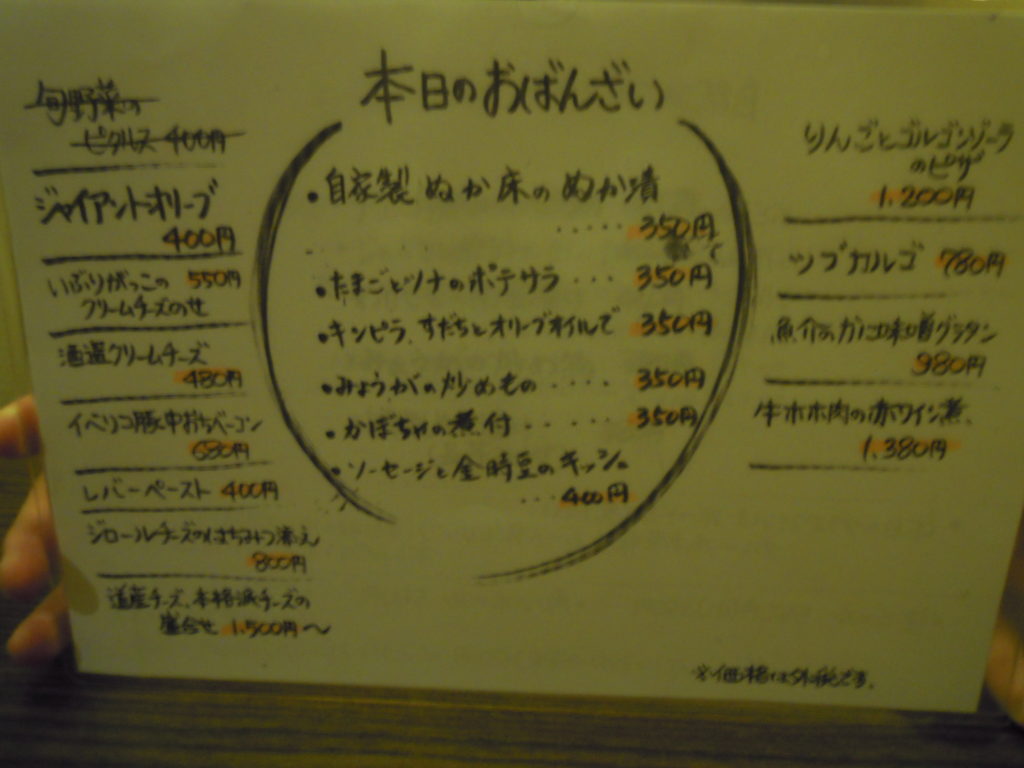 本日のおばんざい
旬野菜の
ピクルス 400円
ジャイアントオリーブ
400円
いぶりがっこの 550円
クリームチーズのせ
酒盗クリームチーズ
480円
イベリコ豚中おちベーコン
680円
レバーペースト 400円
ジロールチーズのはちみつ添え
800円
道産チーズ、本格派チーズの
盛合せ 1,500円〜
・自家製 ぬか床の ぬか漬
・・・・・ 350円
・たまごとツナのポテサラ ・・・ 350円
・キンピラ、すだちとオリーブオイルで 350円
・みょうがの炒めもの ・・・・・ 350円
・かぼちゃの煮付 ・・・・・ 350円
・ソーセージと金時豆のキッシュ
・・・400円
りんごとゴルゴンゾーラ
のピザ
1,200円
ツブカルゴ 780円
魚介のカニ味噌グラタン
980円
牛ホホ肉の赤ワイン煮、
1,380円
※価格は外税です。